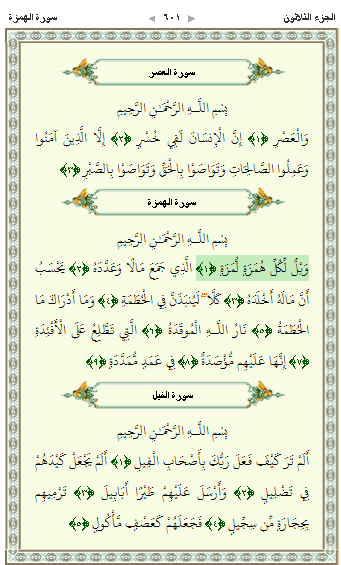 الجزء الثلاثون ◄ ٦٠١ ► سورة الهمزة
سورة العصر
بِسْمِ اللَّـهِ الرَّحْمَـٰنِ الرَّحِيمِ
وَالْعَصْرِ ﴿١﴾ إِنَّ الْإِنسَانَ لَفِي خُسْرٍ ﴿٢﴾ إِلَّا الَّذِينَ آمَنُوا
وَعَمِلُوا الصَّالِحَاتِ وَتَوَاصَوْا بِالْحَقِّ وَتَوَاصَوْا بِالصَّبْرِ ﴿٣﴾
سورة الهمزة
بِسْمِ اللَّـهِ الرَّحْمَـٰنِ الرَّحِيمِ
وَيْلٌ لِّكُلِّ هُمَزَةٍ لُّمَزَةٍ ﴿١﴾ الَّذِي جَمَعَ مَالًا وَعَدَّدَهُ ﴿٢﴾ يَحْسَبُ
أَنَّ مَالَهُ أَخْلَدَهُ ﴿٣﴾ كَلَّا ۖ لَيُنبَذَنَّ فِي الْحُطَمَةِ ﴿٤﴾ وَمَا أَدْرَاكَ مَا
الْحُطَمَةُ ﴿٥﴾ نَارُ اللَّـهِ الْمُوقَدَةُ ﴿٦﴾ الَّتِي تَطَّلِعُ عَلَى الْأَفْئِدَةِ
﴿٧﴾ إِنَّهَا عَلَيْهِم مُّؤْصَدَةٌ ﴿٨﴾ فِي عَمَدٍ مُّمَدَّدَةٍ ﴿٩﴾
سورة الفيل
بِسْمِ اللَّـهِ الرَّحْمَـٰنِ الرَّحِيمِ
أَلَمْ تَرَ كَيْفَ فَعَلَ رَبُّكَ بِأَصْحَابِ الْفِيلِ ﴿١﴾ أَلَمْ يَجْعَلْ كَيْدَهُمْ
فِي تَضْلِيلٍ ﴿٢﴾ وَأَرْسَلَ عَلَيْهِمْ طَيْرًا أَبَابِيلَ ﴿٣﴾ تَرْمِيهِم
بِحِجَارَةٍ مِّن سِجِّيلٍ ﴿٤﴾ فَجَعَلَهُمْ كَعَصْفٍ مَّأْكُولٍ ﴿٥﴾